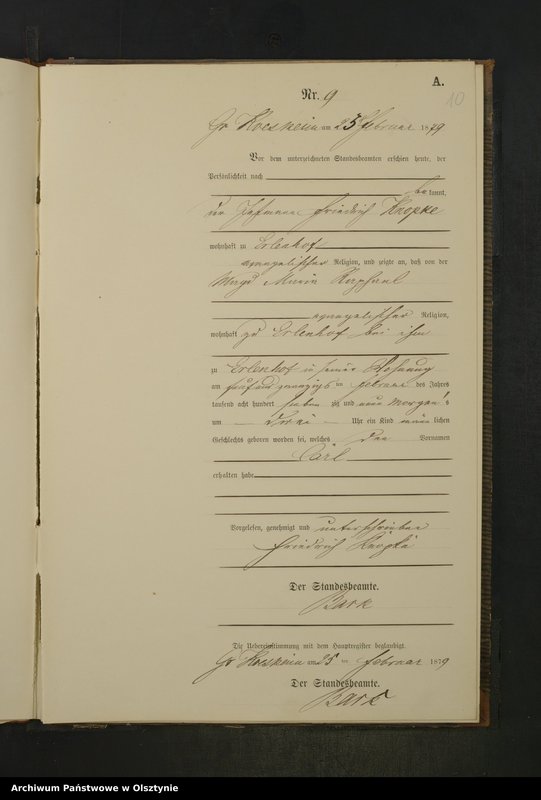 A.
10
Nr. 9
Gr. am 25 Februar 1879
Vor dem unterzeichneten Standesbeamten erschien heute, der
Persönlichkeit nach
be kannt,
der Friedrich Knopke
wohnhaft zu Erlenhof
evangelischer Religion, und zeigte an, daß von der
Magd Maria Raphael
evangelischer Religion,
wohnhaft zu Erlenhof bei ihm
zu Erlenhof in seiner Wohnung
am fünf und zwanzigsten Februar des Jahres
tausend acht hundert sieben zig und neun Morgen s
um drei Uhr ein Kind männ lichen
Geschlechts geboren worden sei, welches den Vornamen
Carl
erhalten habe
Vorgelesen, genehmigt und unterschrieben
Friedrich Knopke
Der Standesbeamte.
Bark
Die Uebereinstimmung mit dem Hauptregister beglaubigt.
Gr. am 25 ten Februar 1879
Der Standesbeamte.
Bark
Archiwum Państwowe w Olsztynie